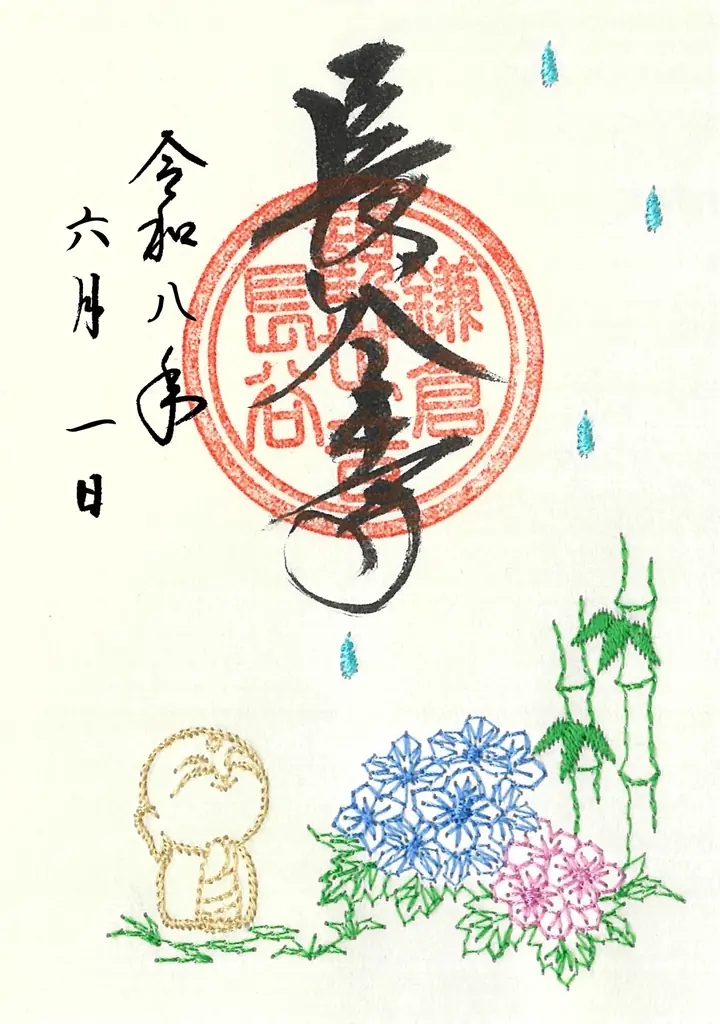 長谷寺
鎌倉
長谷
令和八年
六月一日